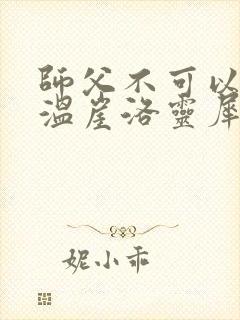 師父不可以
溫崖洛靈犀
妮小乖